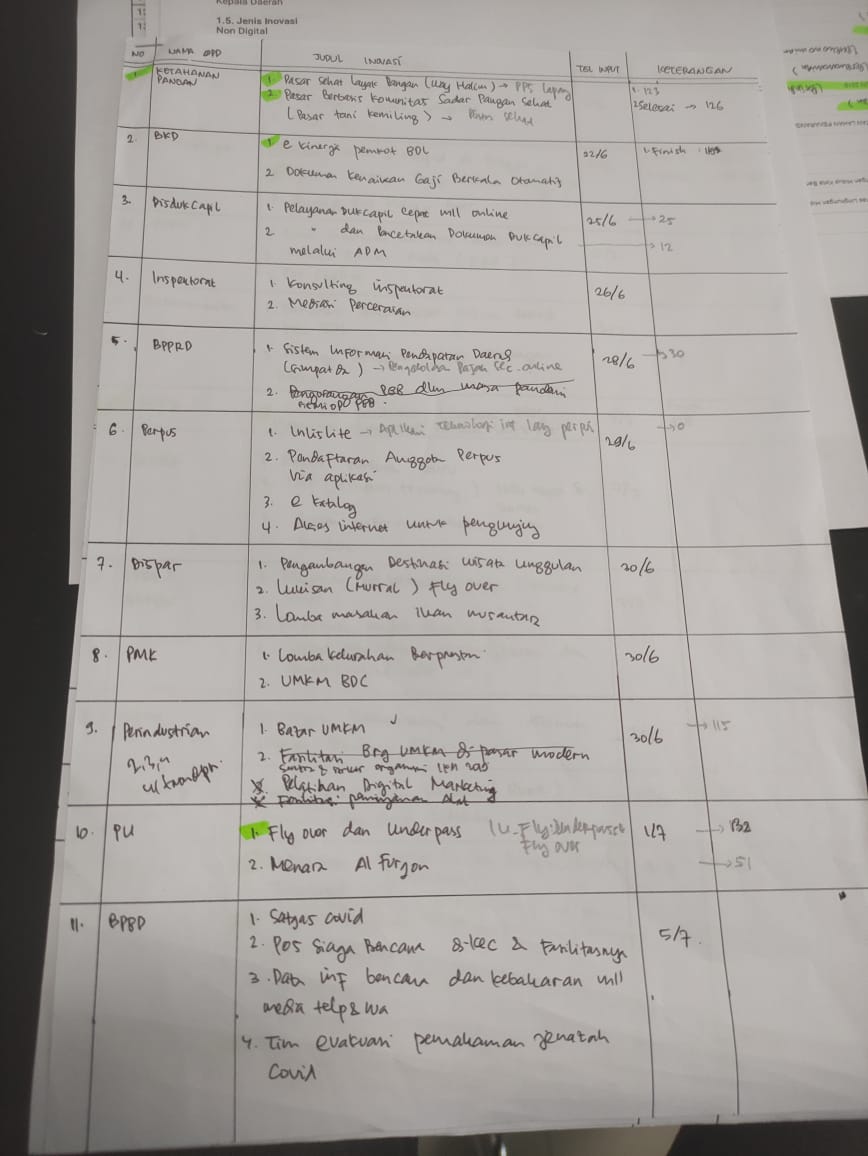 Kepala Daerah
1.5. Jenis Inovasi
Non Digital
NO NAMA OPD JUDUL INOVASI TGL INPUT KETERANGAN
1. KETAHANAN PANGAN
1. Pasar Sehat Layak Pangan (Way Halim) → PPS
1. 123
2. Pasar Berbasis Komunitas Sadar Pangan Sehat
2 Selesai → 126
(Pasar tani Kemiling) →
2. BKD
1. e Kinerja pemkot BDL 22/6 1. Finish
2. Dokumen Kenaikan Gaji Berkala Otomatis
3. Disdukcapil
1. Pelayanan Dukcapil Cepat mll online 25/6 → 25
2. " dan Pencetakan Dokumen Dukcapil → 12
melalui ADM
4. Inspektorat
1. Konsulting inspektorat 26/6
2. Mediasi Perceraian
5. BPPRD
1. Sistem Informasi Pendapatan Daerah 28/6 → 30
→ Pengelolaan Pajak sec. online
2. PBB dlm masa pandemi
6. Perpus
1. Inlislite → Aplikasi teknologi lay perpus 29/6 → 0
2. Pendaftaran Anggota Perpus
via aplikasi
3. e Katalog
4. Akses internet untuk pengunjung
7. Dispar
1. Pengembangan Destinasi wisata unggulan 30/6
2. Lukisan (Murral) Fly over
3. Lomba masakan ikan nusantara
8. PMK
1. Lomba Kelurahan Berprestasi 30/6
2. UMKM BDC
9. Perindustrian
1. Bazar UMKM ✓ 30/6 → 115
2. Fasilitasi Brg UMKM & pasar modern
Pelatihan Digital Marketing
10. PU
1. Fly over dan Underpass 1/7 → 132
Fly over
2. Menara Al Furqon → 51
11. BPBD
1. Satgas covid
2. Pos Siaga Bencana 8-kec & Fasilitasnya 5/7.
3. Data inf bencana dan kebakaran mll
media telp & wa
4. Tim evakuasi pemakaman jenazah
Covid